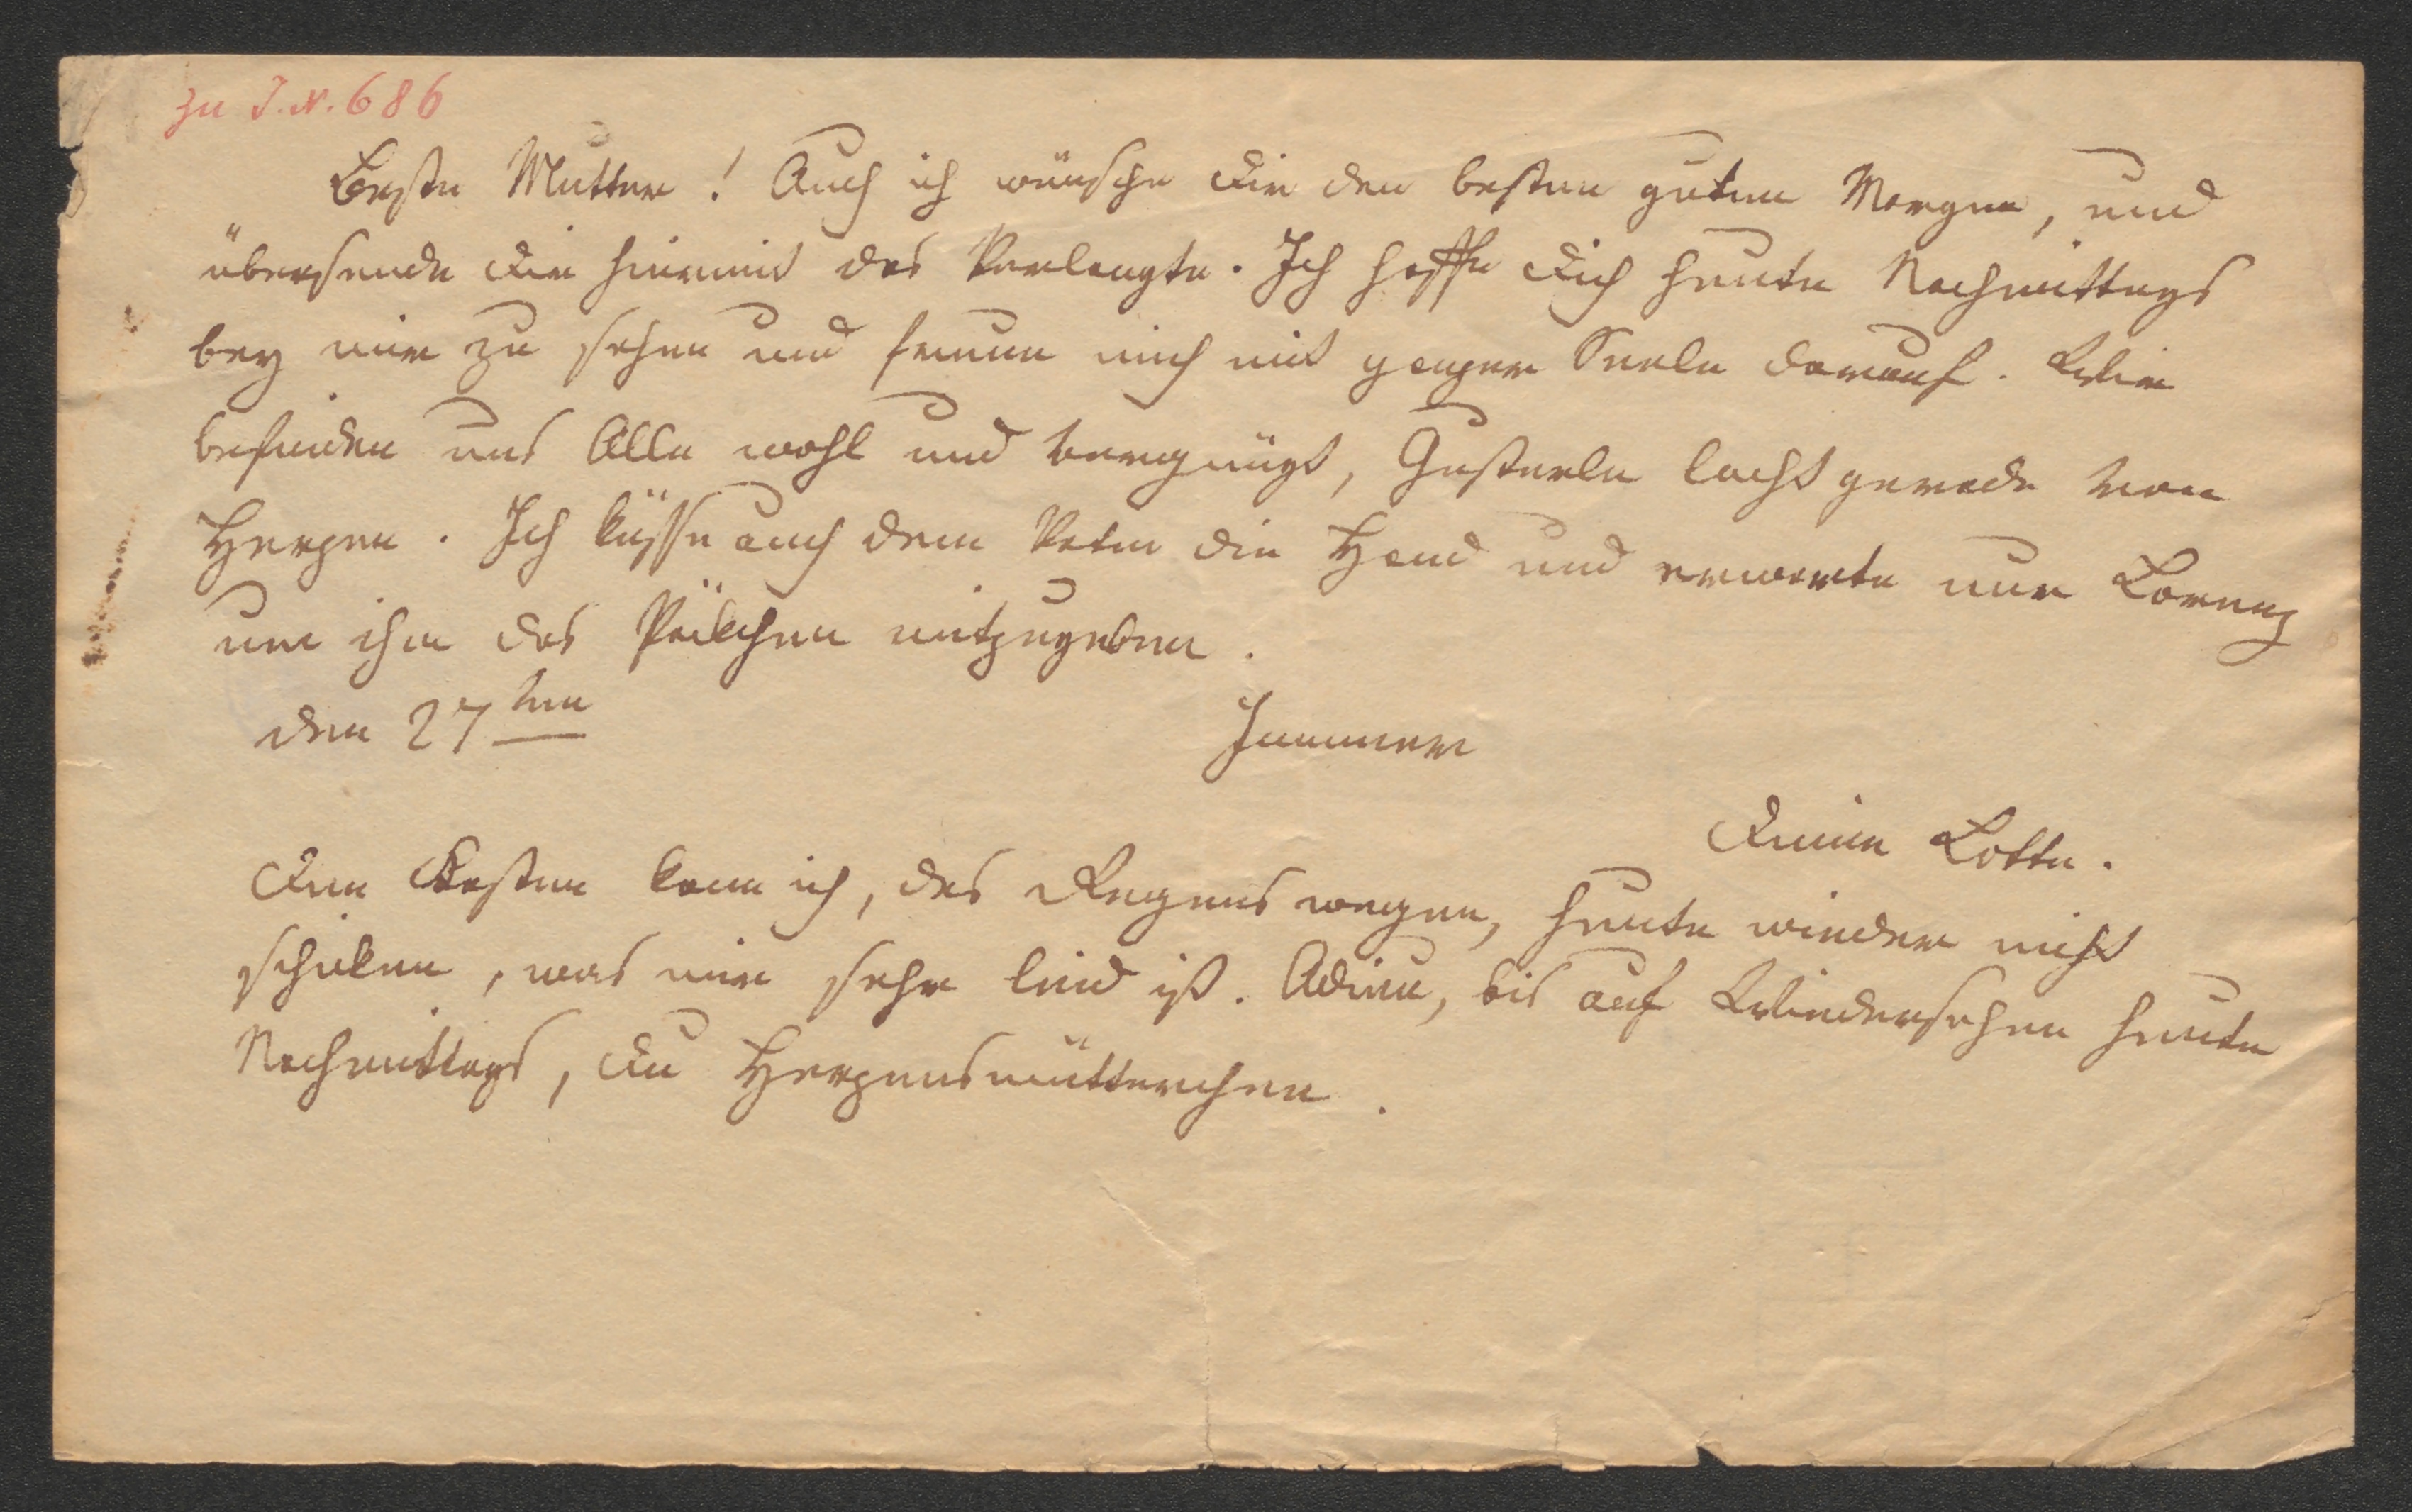 zu I.N. 686
Beste Mutter! Auch ich wünsche Dir den besten guten Morgen, und
übersende Dir hiermit das Verlangte. Ich hoffe Dich heute Nachmittags
bey mir zu sehen und freue mich mit ganzer Seele darauf. Wir
befinden uns Alle wohl und vergnügt, Gusterle lacht gerade von
Herzen. Ich küsse auch dem Vater die Hand und erwarte nur Lorenz
um ihm das Päkchen mitzugeben.
den 27ten Immer
Deine Lotte.
Den kann ich, des Regens wegen, heute wieder nicht
schiken, was mir sehr leid ist. Adieu, bis auf Wiedersehen heute
Nachmittags, Du Herzensmütterchen.